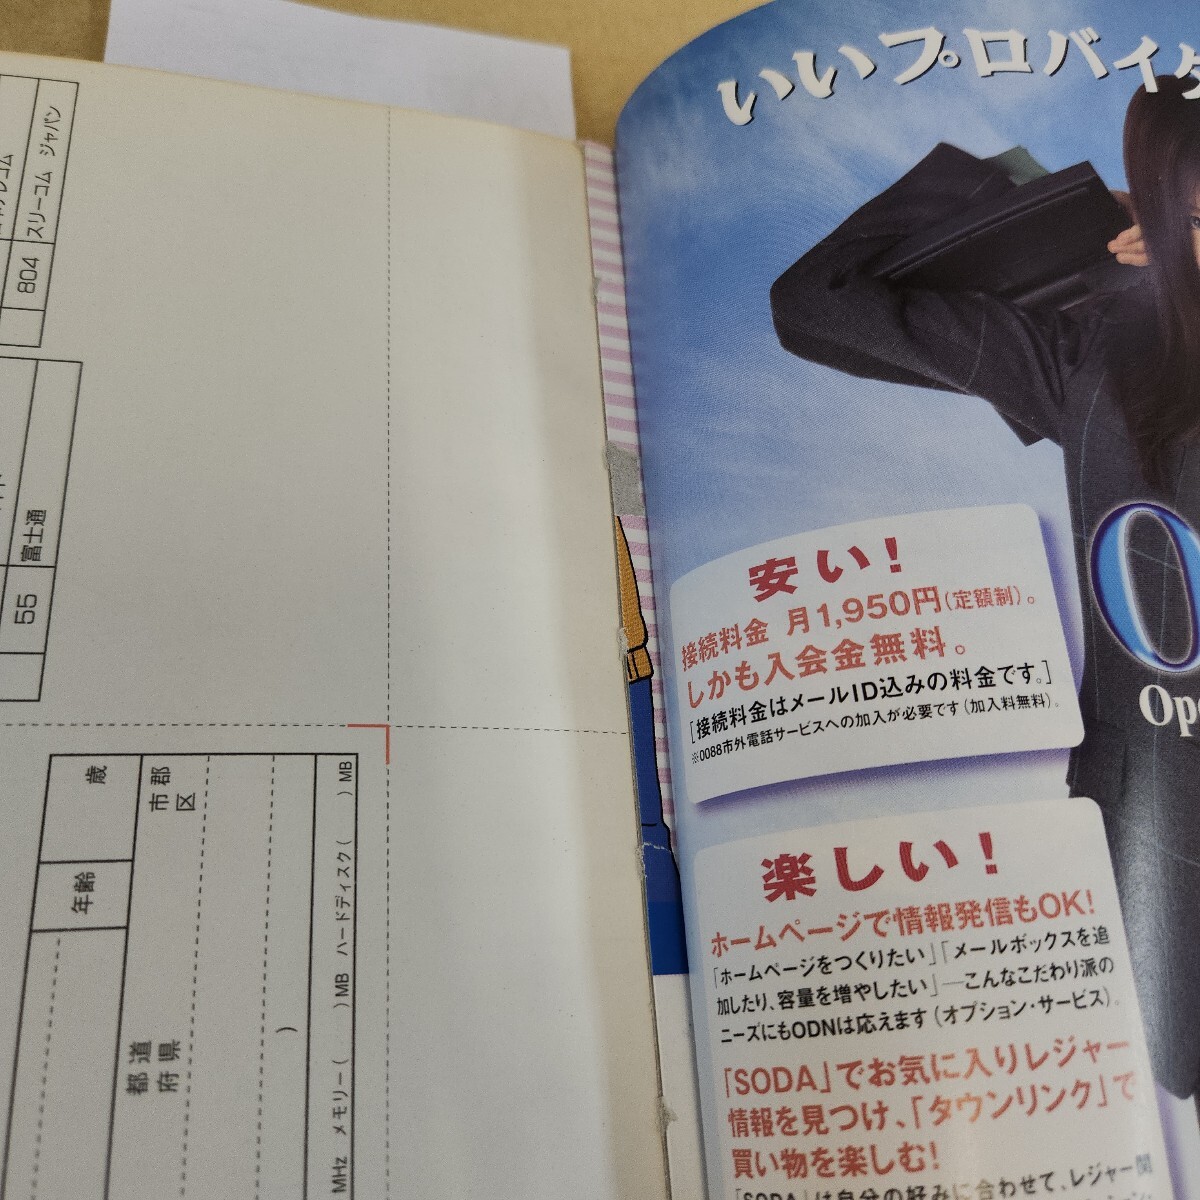 スリーコム ジャパン
804
富士通
55
歳
年齢
市郡区
都道府県
)
MHz メモリー( )MB ハードディスク( )MB
いいプロバイダ
安い!
接続料金 月1,950円(定額制)。
しかも入会金無料。
[接続料金はメールID込みの料金です。]
※0088市外電話サービスへの加入が必要です(加入料無料)。
O
Ope
楽しい!
ホームページで情報発信もOK!
「ホームページをつくりたい」「メールボックスを追
加したり、容量を増やしたい」―こんなこだわり派の
ニーズにもODNは応えます(オプション・サービス)。
「SODA」でお気に入りレジャー
情報を見つけ、「タウンリンク」で
買い物を楽しむ!
「SODA」は自分の好みに合わせて、レジャー関